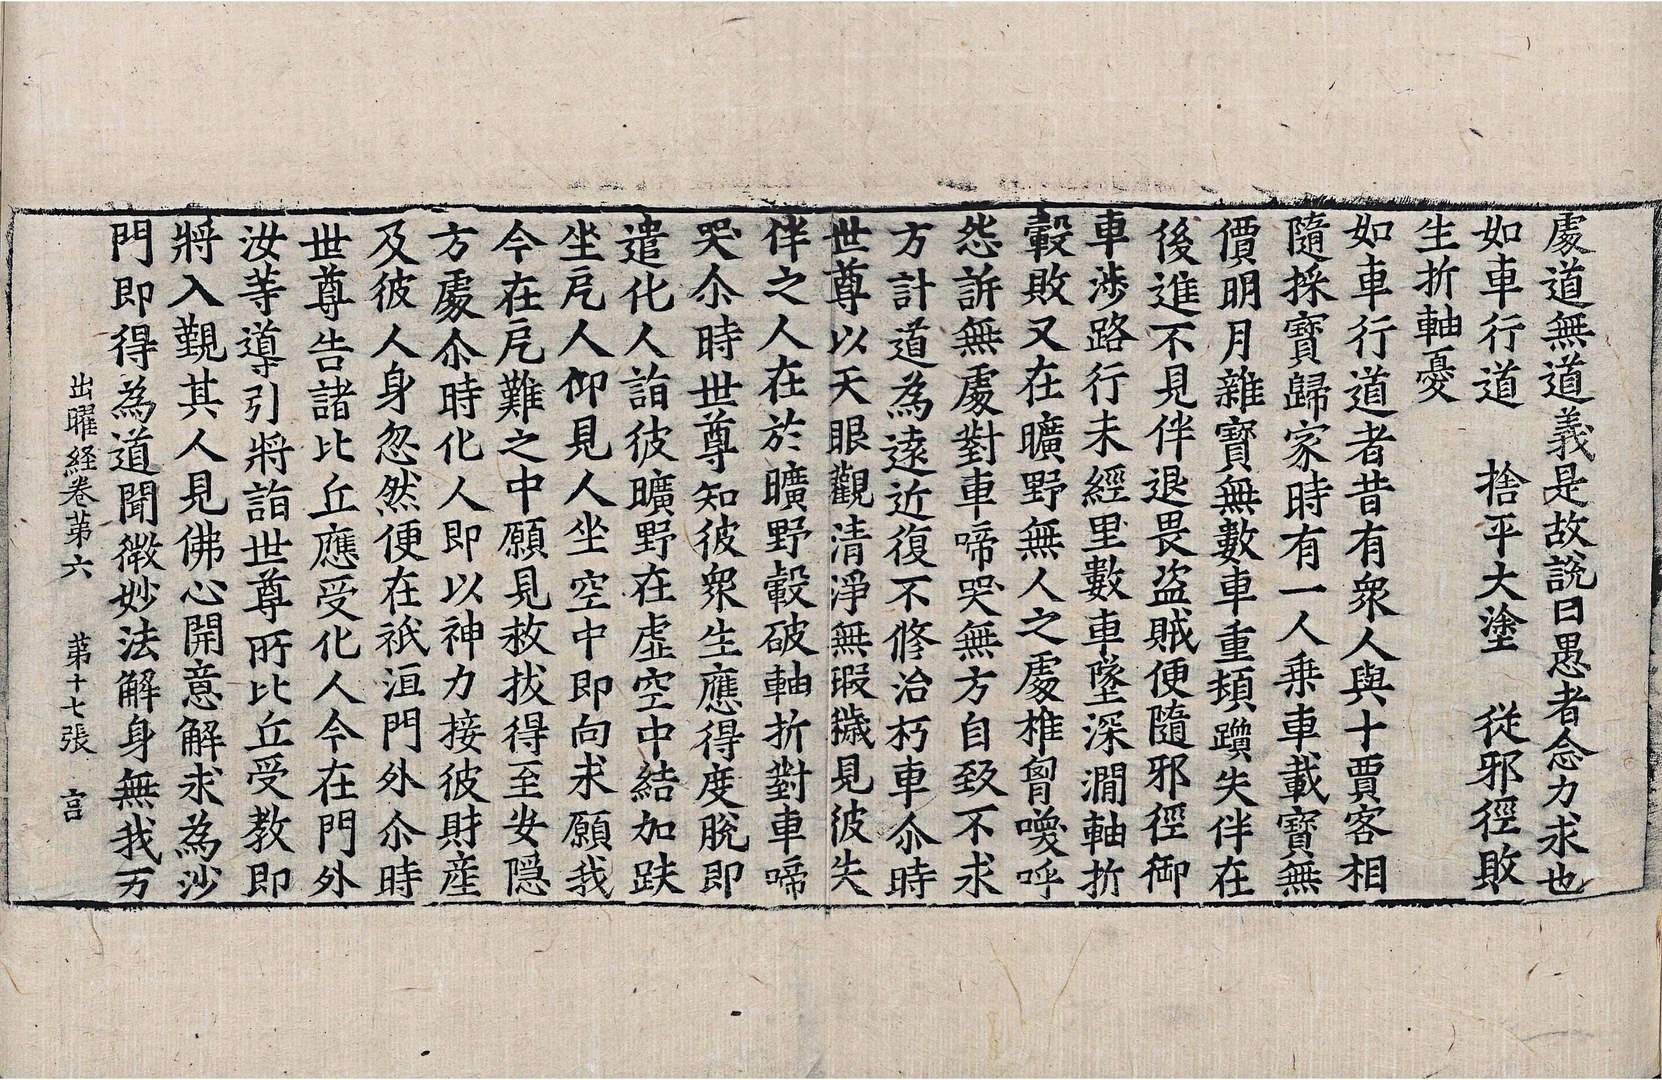 處道無道義是故說曰愚者念力求也
如車行道　捨平大塗　從邪徑敗
生折軸憂
如車行道者昔有衆人與十賈客相
隨採寶歸家時有一人乗車載寶無
價明月雜寶無數車重頓躓失伴在
後進不見伴退畏盗賊便隨邪徑御
車涉路行未經里數車墜深澗軸折
轂敗又在曠野無人之處椎胷喚呼
怨訴無處對車啼哭無方自致不求
方計道為遠近復不修治朽車尒時
世尊以天眼觀清淨無瑕穢見彼失
伴之人在於曠野轂破軸折對車啼
哭尒時世尊知彼衆生應得度脫即
遣化人詣彼曠野在虛空中結加趺
坐戹人仰見人坐空中即向求願我
今在戹難之中願見救拔得至安隱
方處尒時化人即以神力接彼財産
及彼人身忽然便在祇洹門外尒時
世尊告諸比丘應受化人今在門外
汝等導引將詣世尊所比丘受教即
將入覲其人見佛心開意解求為沙
門即得為道聞微妙法解身無我万
出曜経卷第六　第十七張　言